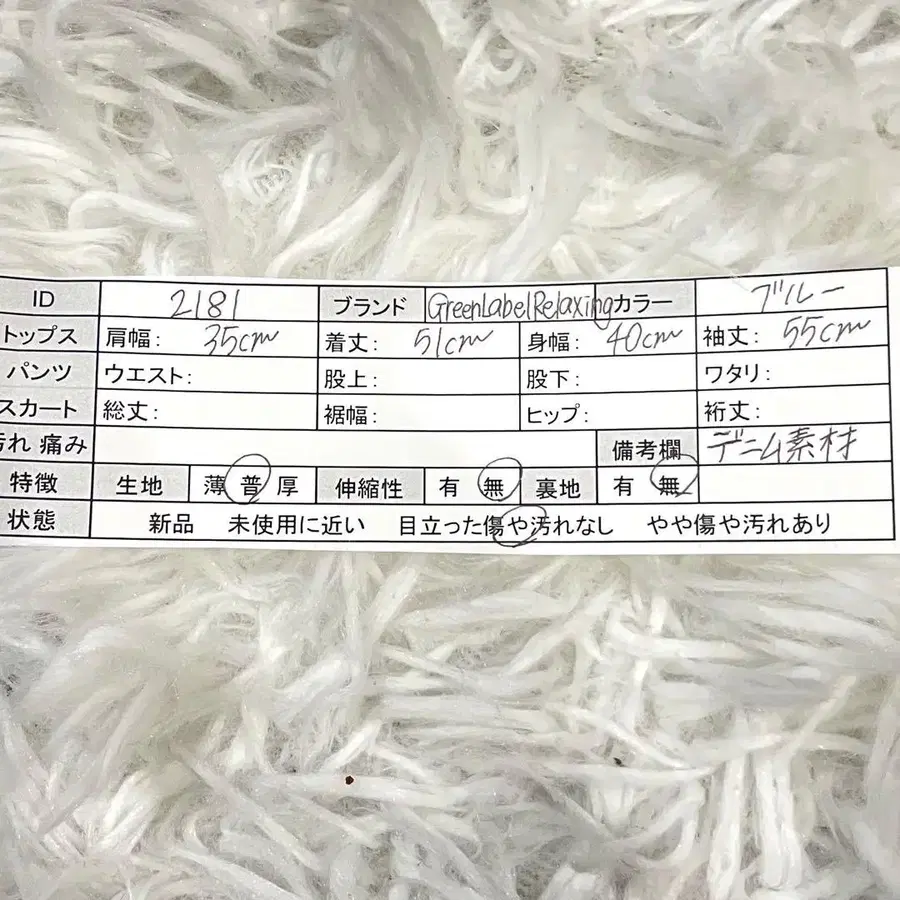 ID 2181 ブランド GreenLabelRelaxing カラー ブルー
トップス 肩幅: 35cm 着丈: 51cm 身幅: 40cm 袖丈: 55cm
パンツ ウエスト: 股上: 股下: ワタリ:
スカート 総丈: 裾幅: ヒップ: 裄丈:
汚れ 痛み 備考欄 デニム素材
特徴 生地 薄 普 厚 伸縮性 有 無 裏地 有 無
状態 新品 未使用に近い 目立った傷や汚れなし やや傷や汚れあり